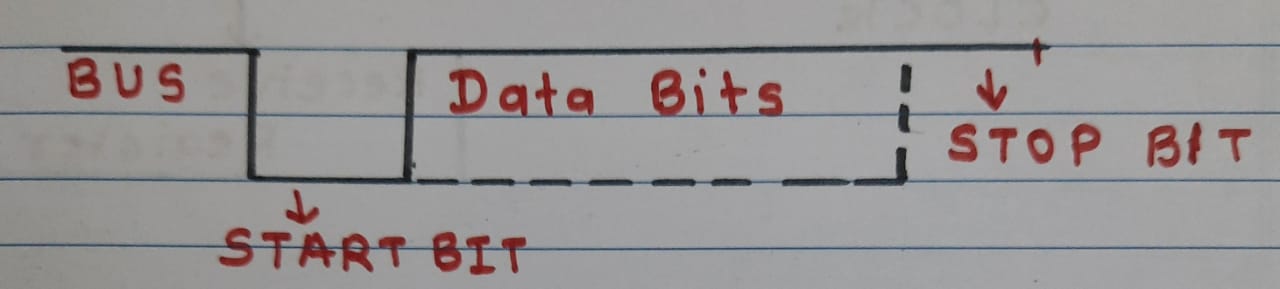 BUS
Data Bits
STOP BIT
START BIT